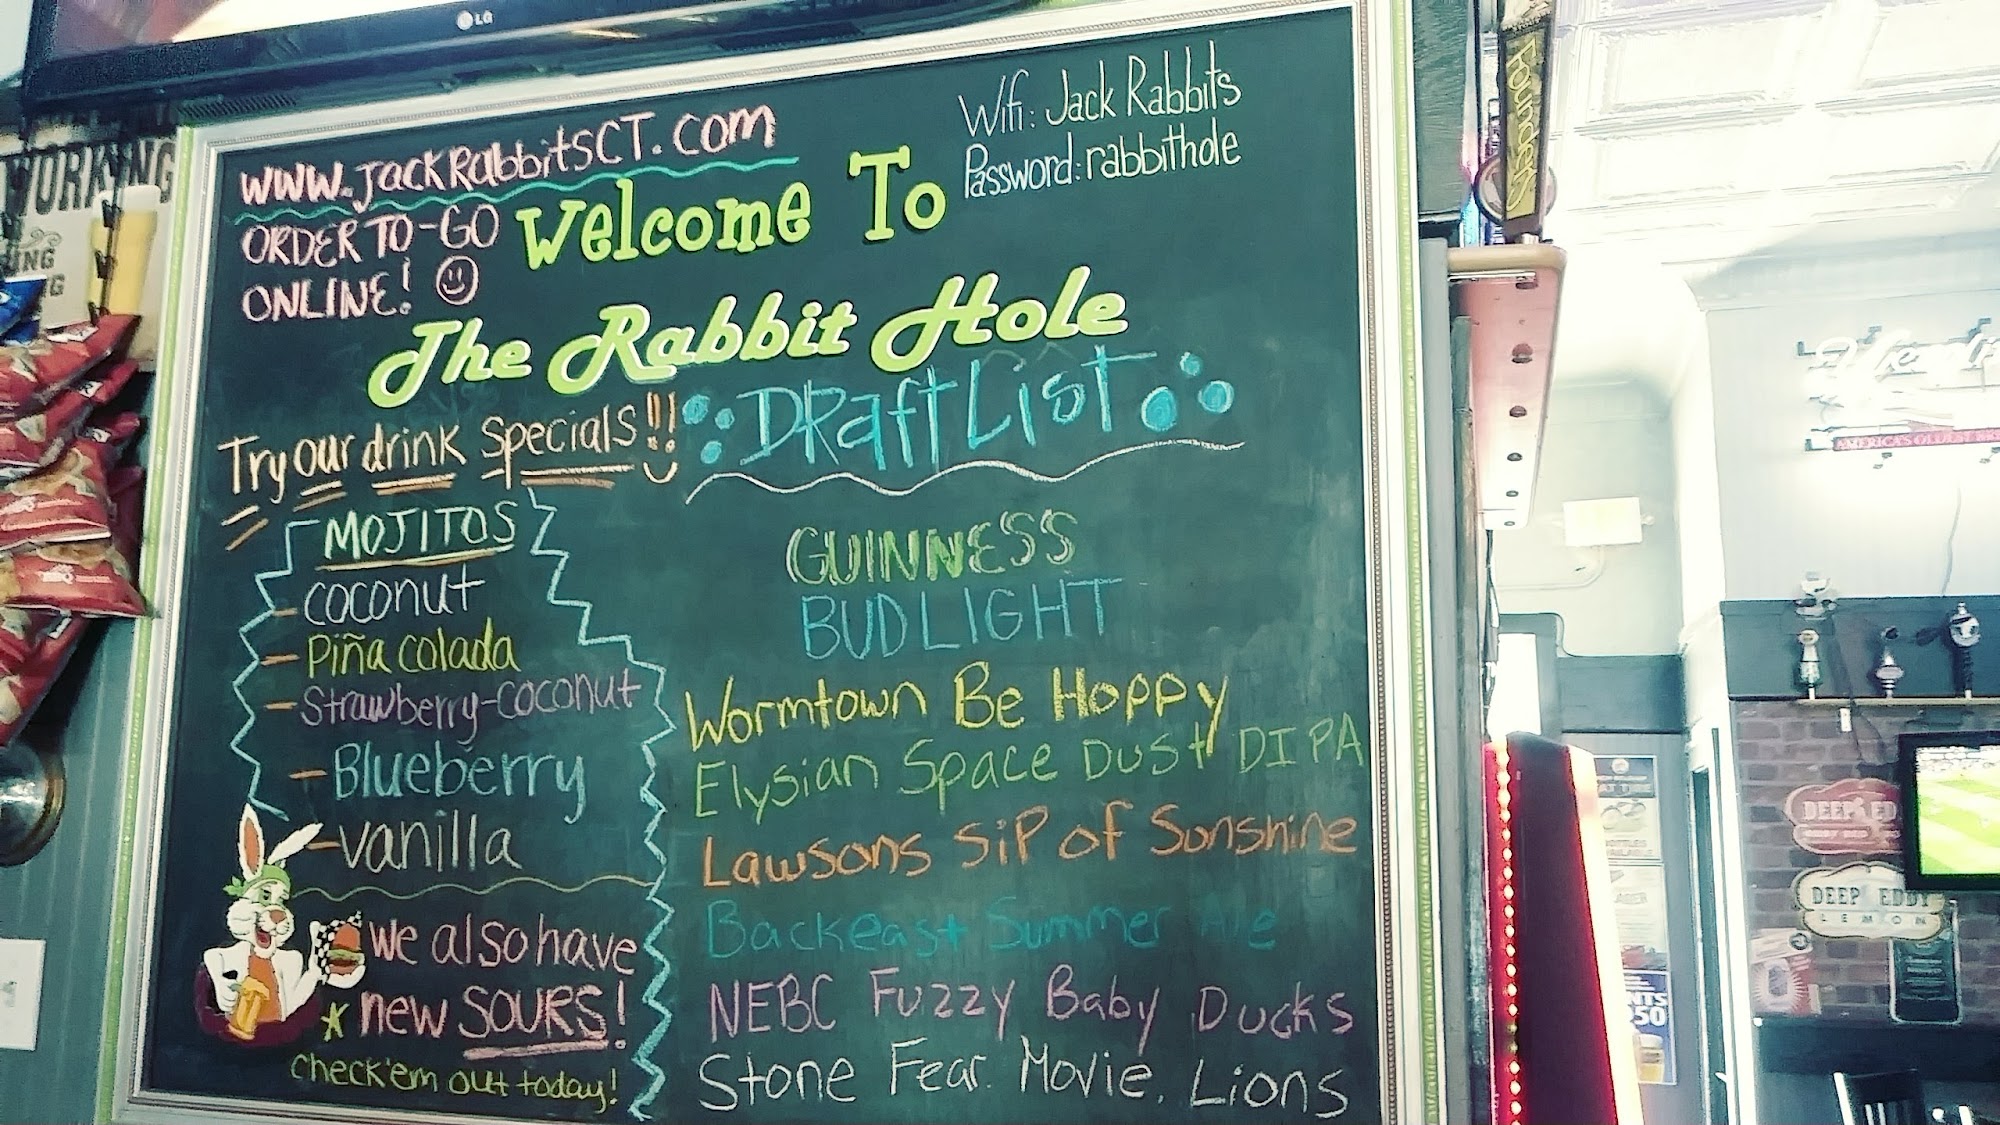 LG
www.JackRabbitsCT.com
ORDER TO-GO
ONLINE!
Wifi: Jack Rabbits
Password: rabbithole
Welcome To
The Rabbit Hole
Try our drink specials!!
DRaft List
MOJITOS
- coconut
- Piña colada
- Strawberry-coconut
- Blueberry
- vanilla
we also have
* new SOURS!
check'em out today!
GUINNESS
BUD LIGHT
Wormtown Be Hoppy
Elysian Space Dust DIPA
Lawsons SiP of Sunshine
Backeast Summer Ale
NEBC Fuzzy Baby Ducks
Stone Fear. Movie. Lions
Founders
AMERICA'S OLDEST
DEEP ED
DEEP EDDY
LEMON